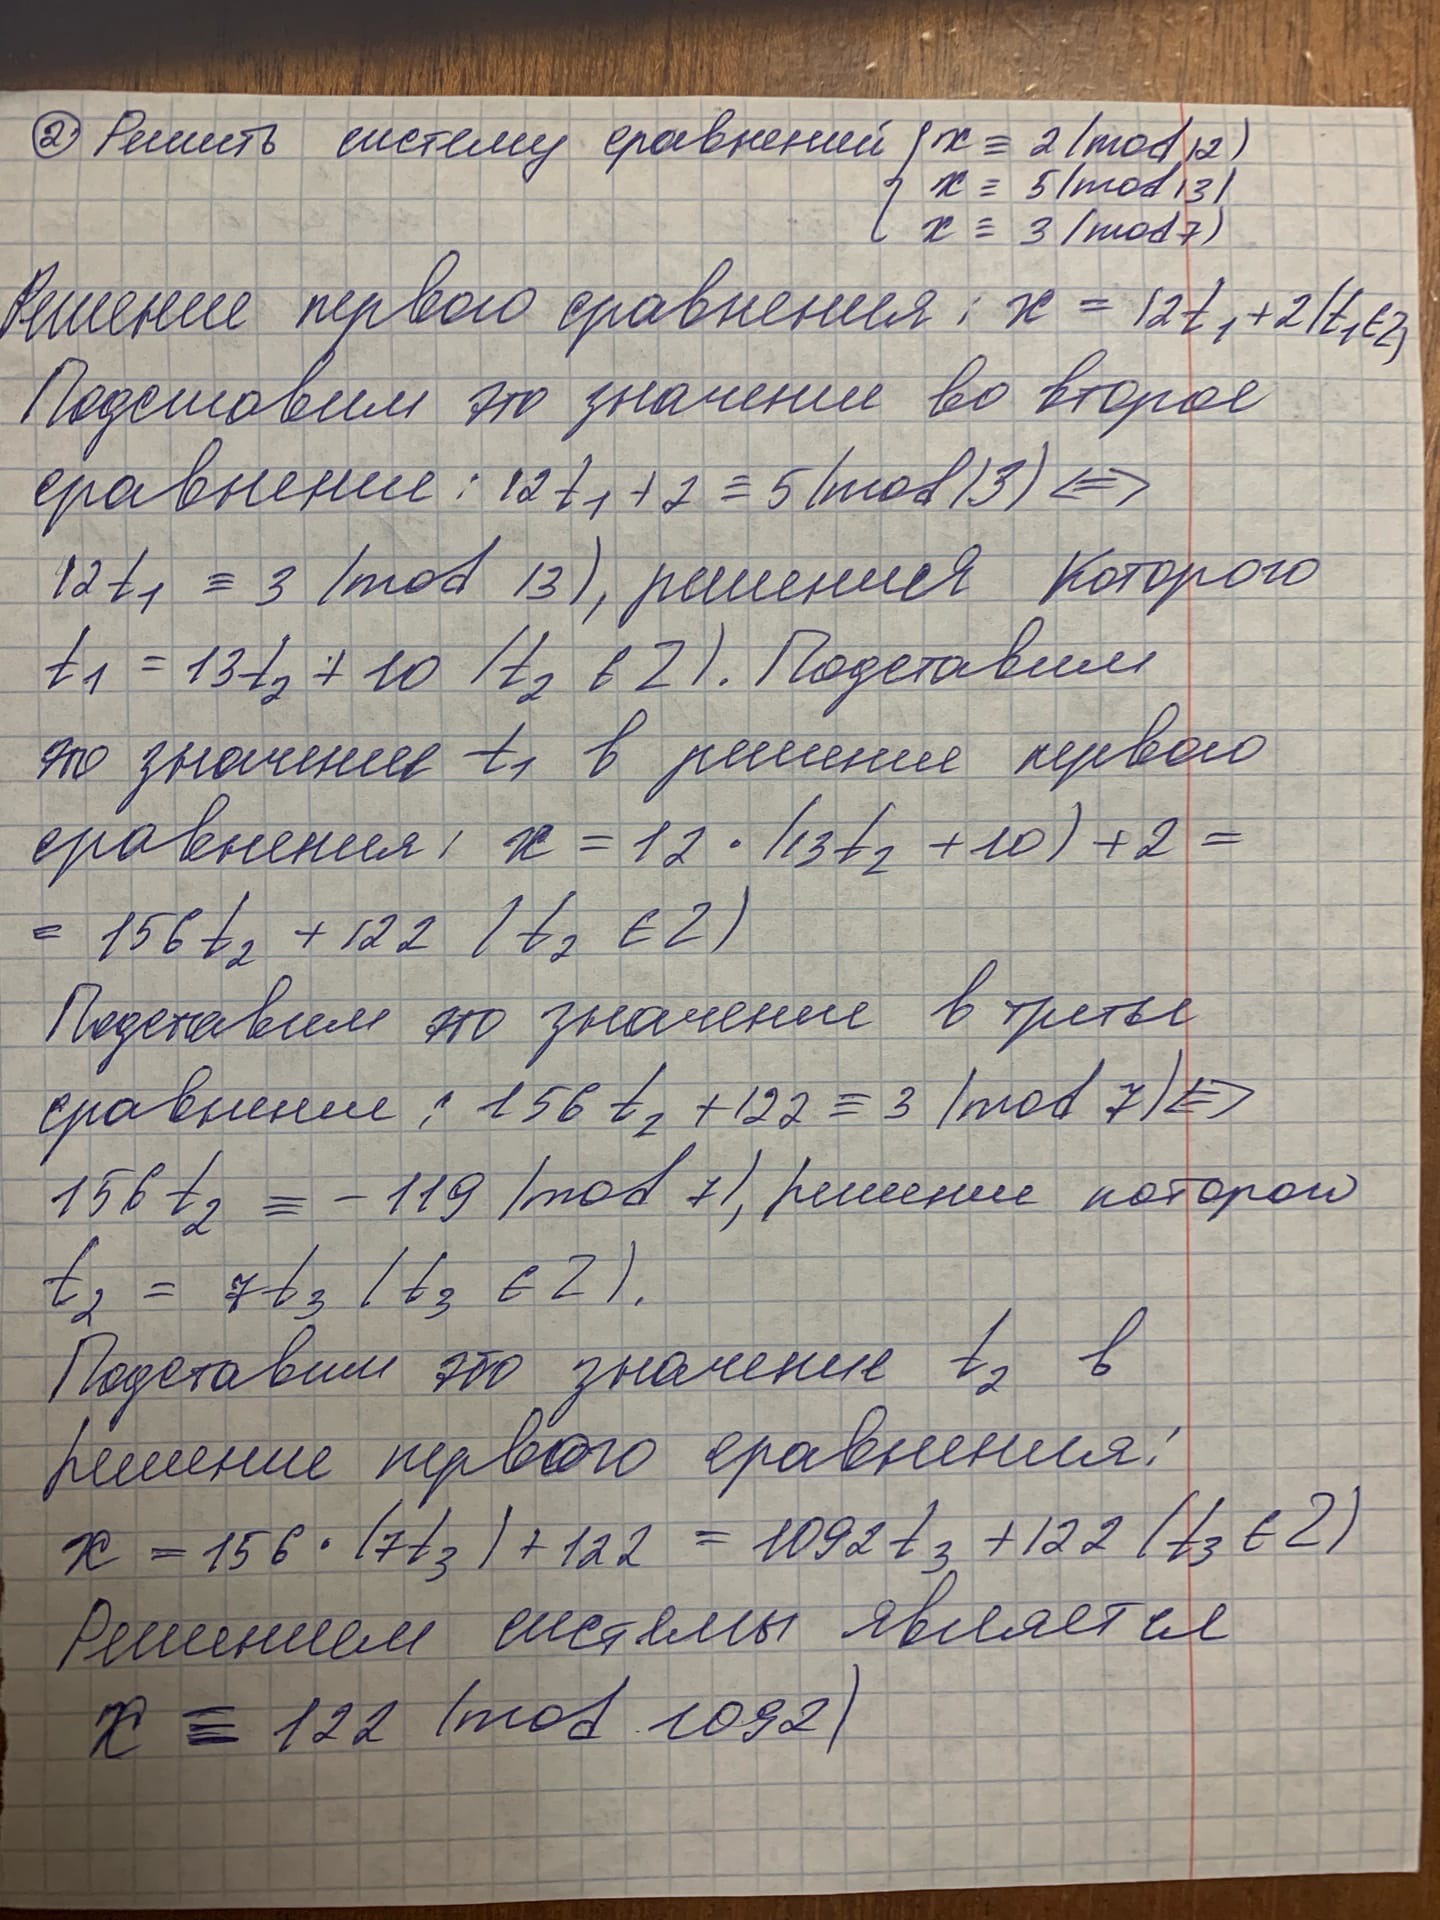 2) Решить систему сравнений { x ≡ 2 (mod 12)
x ≡ 5 (mod 13)
x ≡ 3 (mod 7)
Решение первого сравнения: x = 12t₁ + 2 (t₁ ∈ Z)
Подставим это значение во второе
сравнение: 12t₁ + 2 ≡ 5 (mod 13) <=>
12t₁ ≡ 3 (mod 13), решения которого
t₁ = 13t₂ + 10 (t₂ ∈ Z). Подставим
это значение t₁ в решение первого
сравнения: x = 12 · (13t₂ + 10) + 2 =
= 156t₂ + 122 (t₂ ∈ Z)
Подставим это значение в третье
сравнение: 156t₂ + 122 ≡ 3 (mod 7) <=>
156t₂ ≡ -119 (mod 7), решение которого
t₂ = 7t₃ (t₃ ∈ Z).
Подставим это значение t₂ в
решение первого сравнения:
x = 156 · (7t₃) + 122 = 1092t₃ + 122 (t₃ ∈ Z)
Решением системы является
x ≡ 122 (mod 1092)